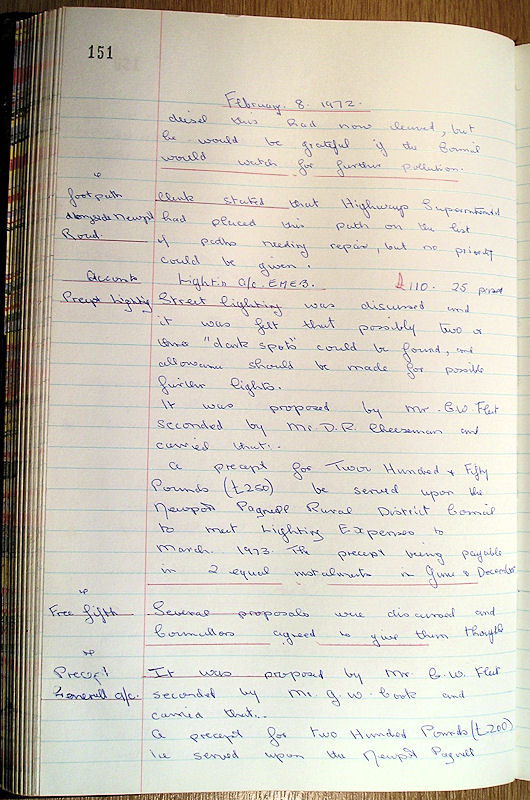 151
February. 8. 1972.
diesel this had now cleared, but
he would be grateful if the Council
would watch for further pollution.
footpath Clerk stated that Highways Superintendent
alongside Newport had placed this path on the list
Road. of paths needing repair, but no priority
could be given.
Accounts Lighting a/c. E.M.E.B. £110. 25 passed
Precept Lighting Street lighting was discussed and
it was felt that possibly two or
"dark spots" could be found, and
allowance should be made for possible
further lights.
It was proposed by Mr. G.W. Flet
seconded by Mr D.R. Cheeseman and
carried that:.
a precept for Two Hundred & Fifty
Pounds (£250) be served upon the
Newport Pagnell Rural District Council
to meet Lighting Expenses to
March. 1973. The precept being payable
in 2 equal instalments in June & December
Free fifth Several proposals were discussed and
Councillors agreed to give them thought
Precept It was proposed by Mr G.W. Flet
General a/c. seconded by Mr. G. W. Cook and
carried that..
a precept for two Hundred Pounds (£200)
be served upon the Newport Pagnell